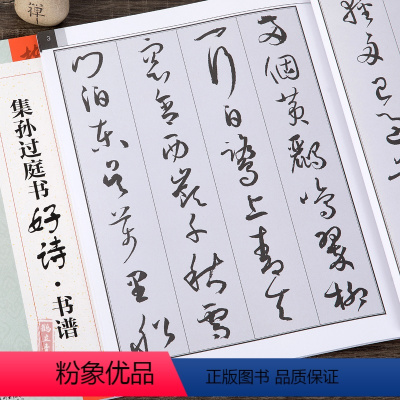 禅
3
两個黄鸝鳴翠柳
一行白鹭上青天
窓含西嶺千秋雪
门泊东吴万里船
集孙过庭书
好诗·书谱
粉象优品
正版图书 优质服务